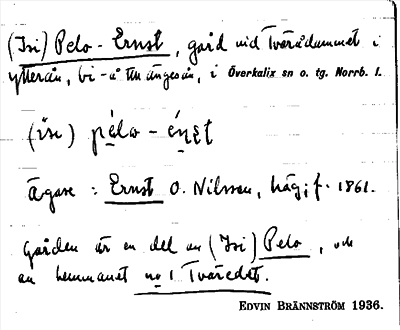 (Isi) Pelo - Ernst, gård vid Tvärådammet i
ytterån, bi-å till ängesån, i Överkalix sn o. tg. Norrb. l.
(ı̊sı) pélo - éṇṣt
Ägare: Ernst O. Nilsson, häg; f. 1861.
Gården är en del av (Isi) Pelo, och
av hemmanet no 1 Tväredet.
EDVIN BRÄNNSTRÖM 1936.